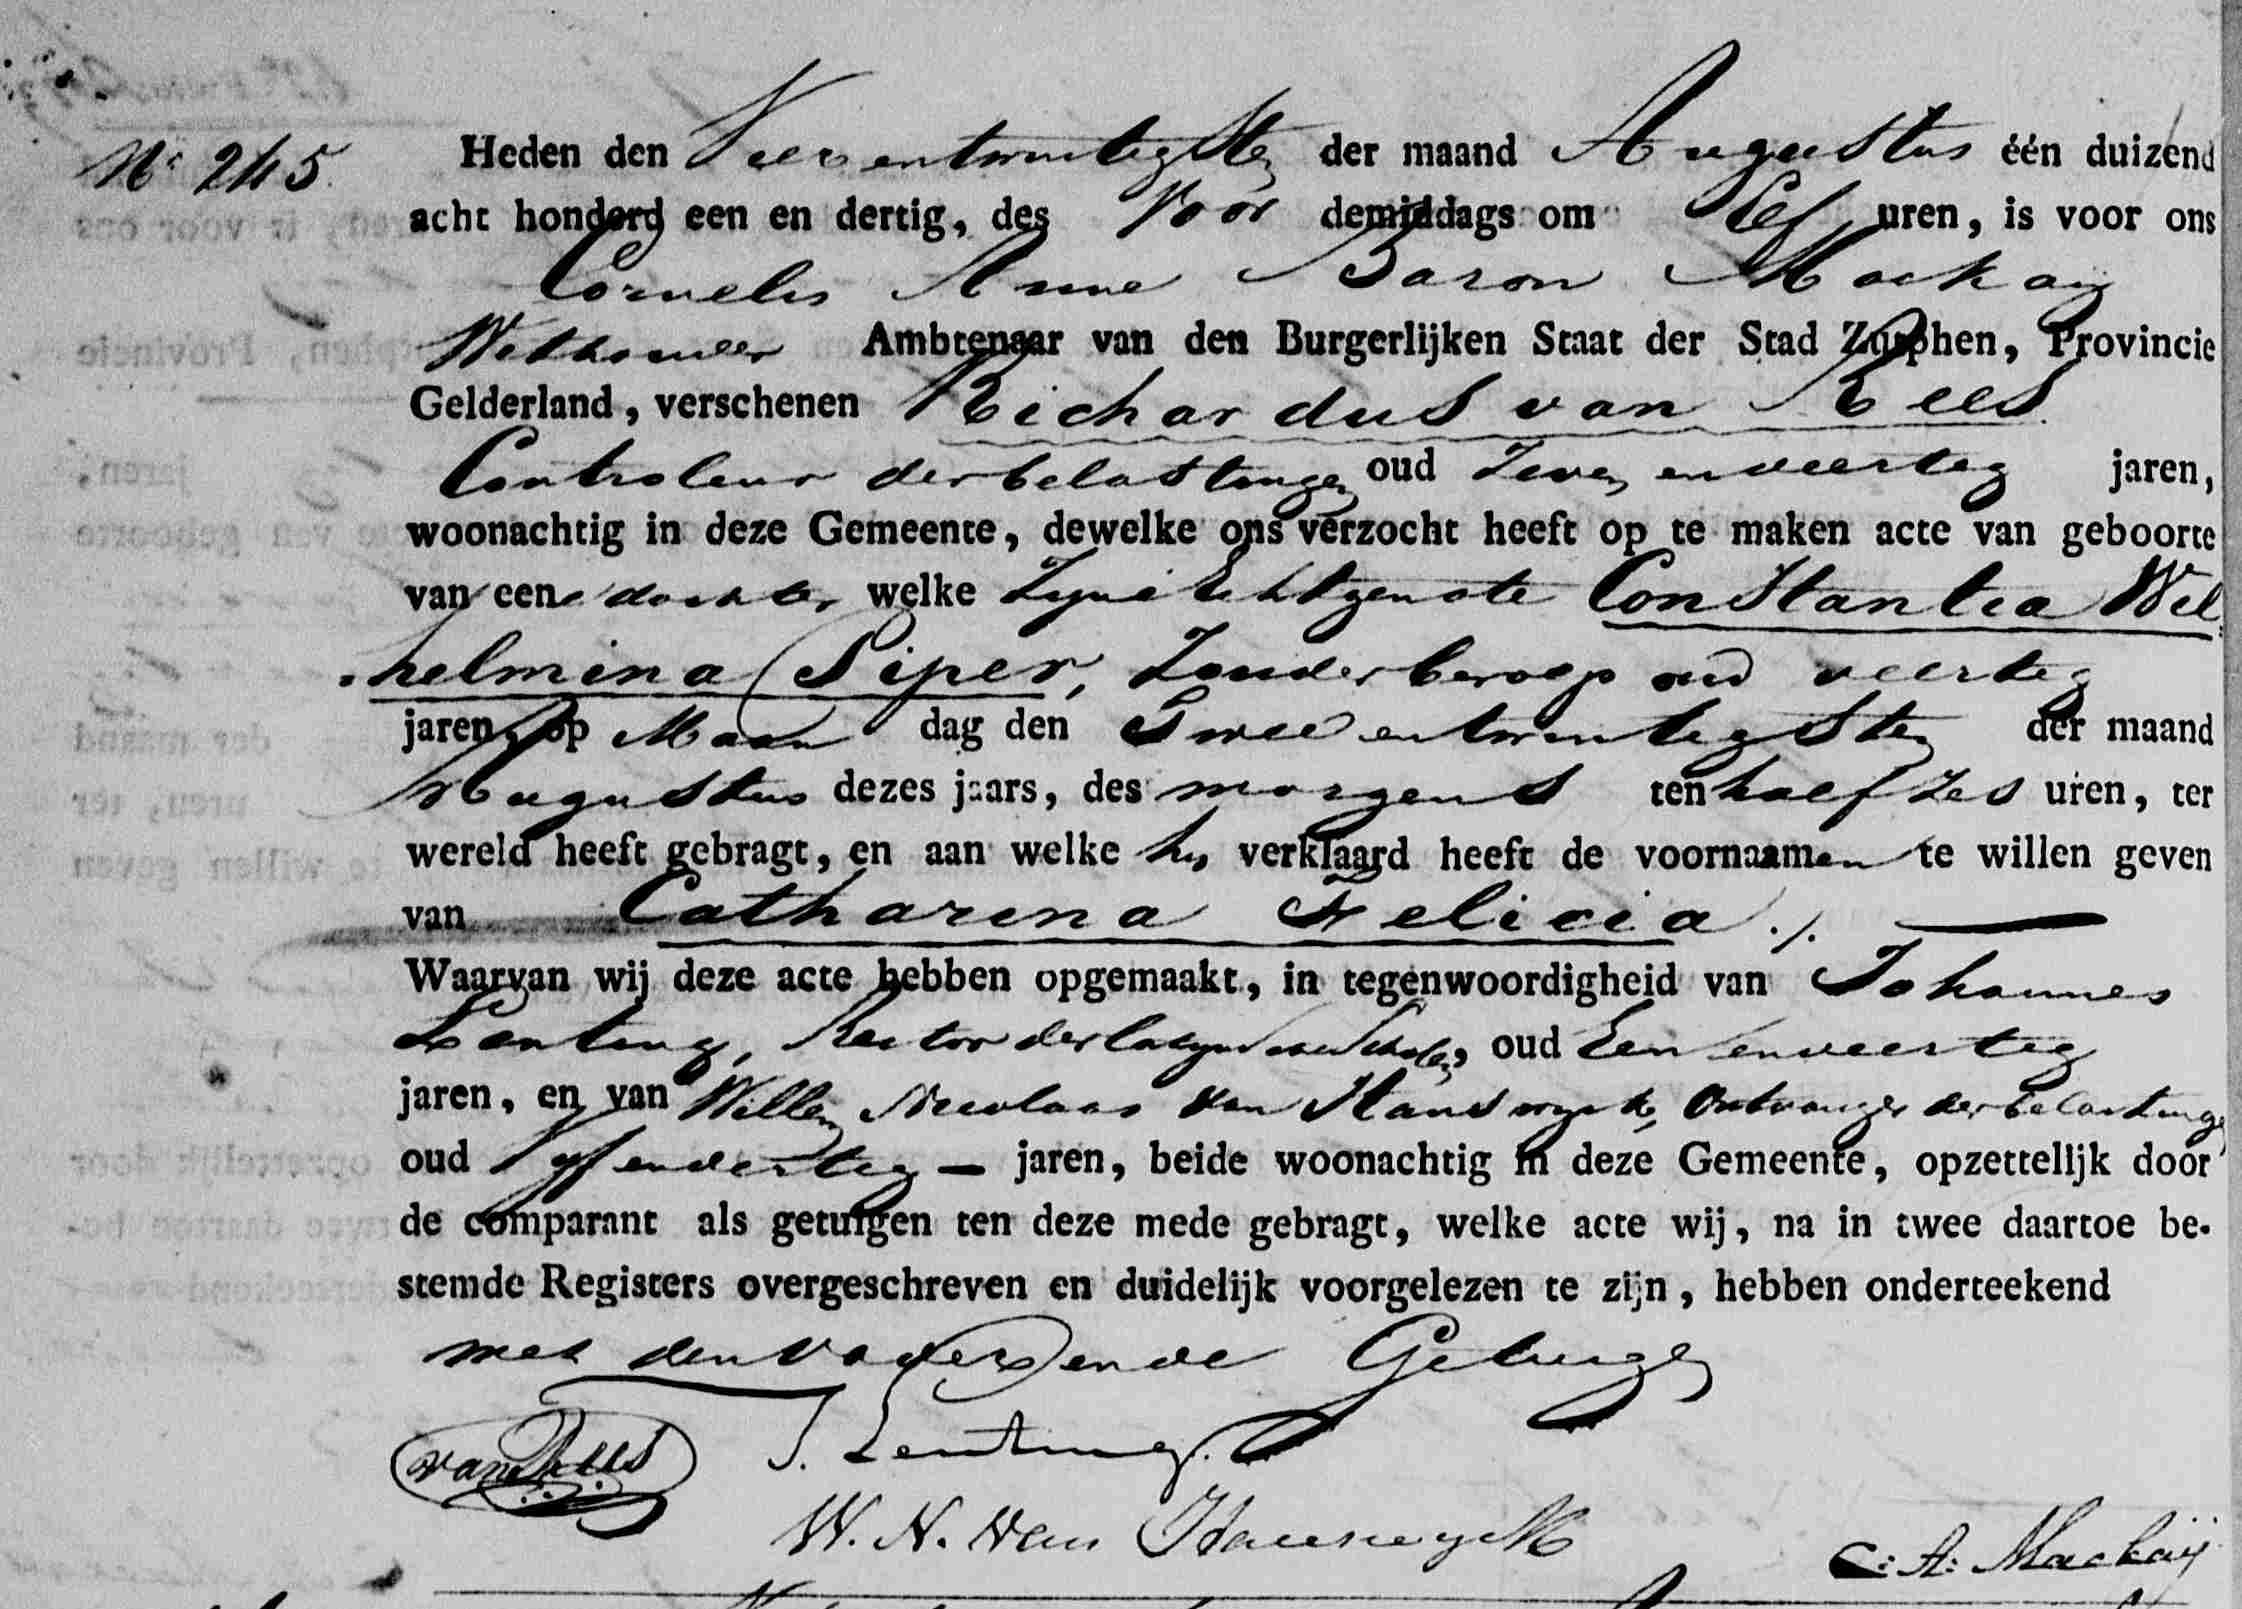 N° 245. Heden den Vierentwintigsten der maand Augustus één duizend
acht honderd een en dertig, des Voor demiddags om Elf uren, is voor ons
Cornelis Anne Baron Mackaij
Wethouder Ambtenaar van den Burgerlijken Staat der Stad Zutphen, Provincie
Gelderland, verschenen Richardus van Rees
Controleur der belastingen oud Zeven en veertig jaren,
woonachtig in deze Gemeente, dewelke ons verzocht heeft op te maken acte van geboorte
van eene dochter welke Zyne Echtgenote Constantia Wil
helmina Piper, Zonder beroep oud veertig
jaren, op Maan dag den Twee entwintigsten der maand
Augustus dezes jaars, des morgens ten half Zes uren, ter
wereld heeft gebragt, en aan welke hy verklaard heeft de voornaamen te willen geven
van Catharina Felicia ./.
Waarvan wij deze acte hebben opgemaakt, in tegenwoordigheid van Johannes
Lenting, Rector der latynsche Scholen, oud Een en veertig
jaren, en van Willem Nicolaas van Hanswyck, Ontvanger der belastingen
oud Vyf en dertig — jaren, beide woonachtig in deze Gemeente, opzettelijk door
de comparant als getuigen ten deze mede gebragt, welke acte wij, na in twee daartoe be-
stemde Registers overgeschreven en duidelijk voorgelezen te zijn, hebben onderteekend
met den vader en de Getuigen
van Rees J. Lenting.
W. N. van Hanswyck
C: A: Mackaij